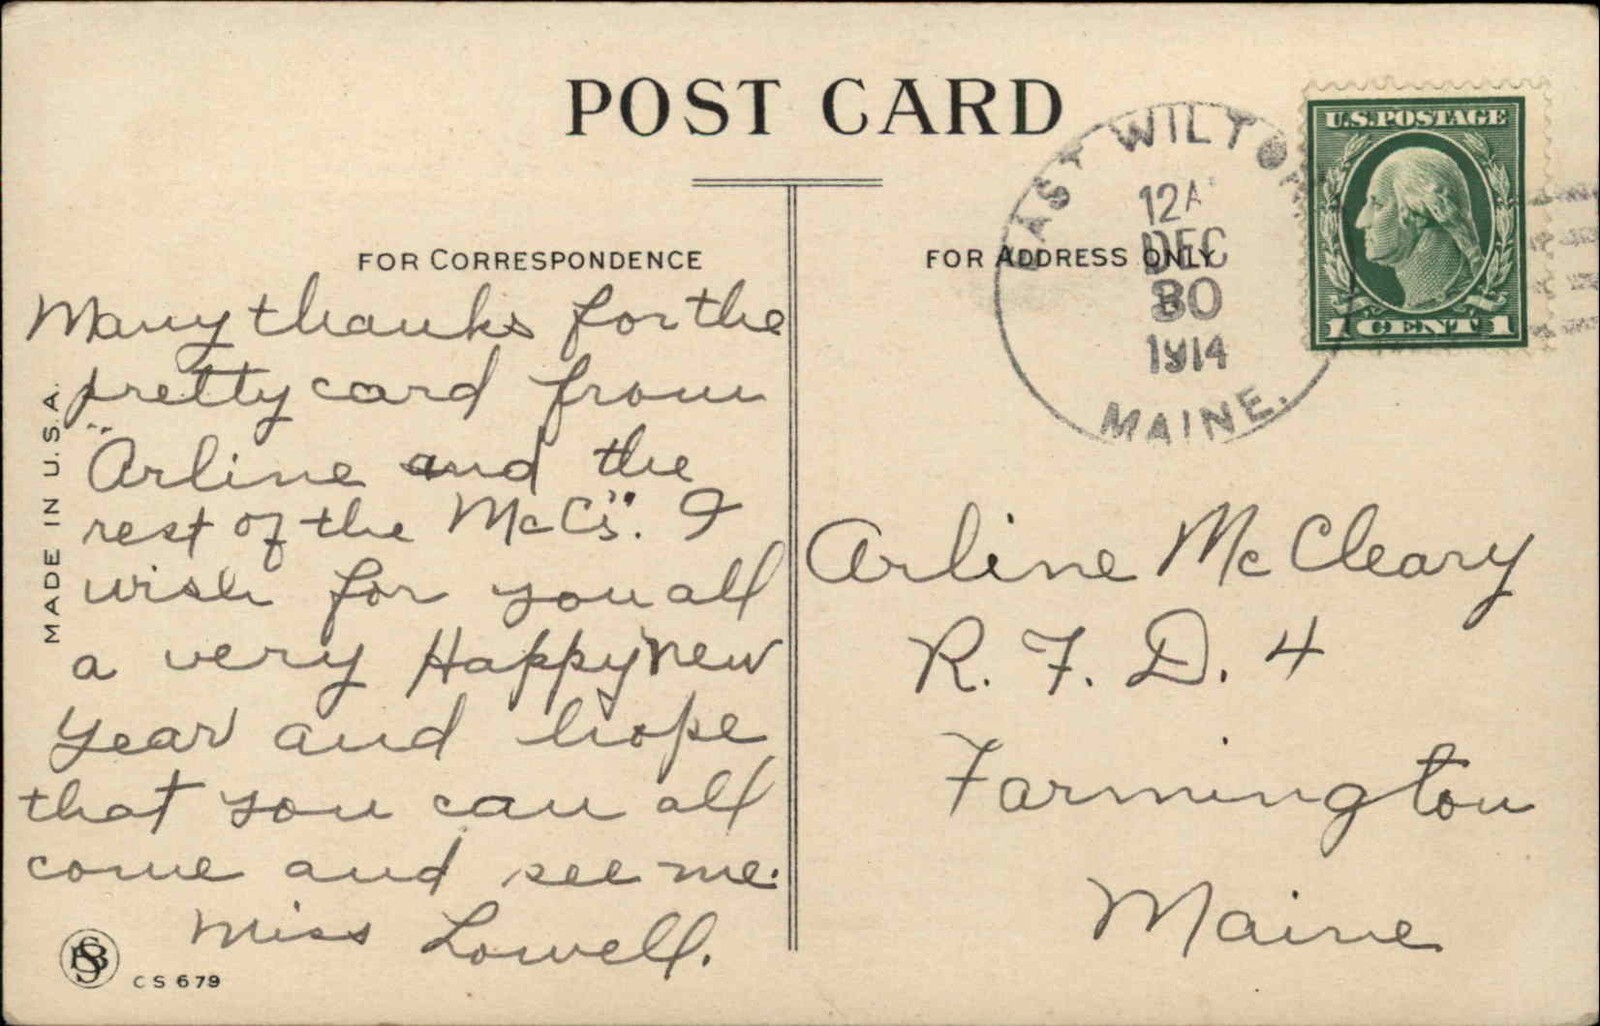 POST CARD
FOR CORRESPONDENCE
Many thanks for the
pretty card from
"Arline and the
rest of the McC's". I
wish for you all
a very Happy New
Year and hope
that you can all
come and see me.
Miss Lowell.
MADE IN U.S.A.
CS 679
FOR ADDRESS ONLY
EAST WILTON
12A
DEC
30
1914
MAINE.
U.S. POSTAGE
1 CENT 1
Arline McCleary
R. F. D. 4
Farmington
Maine